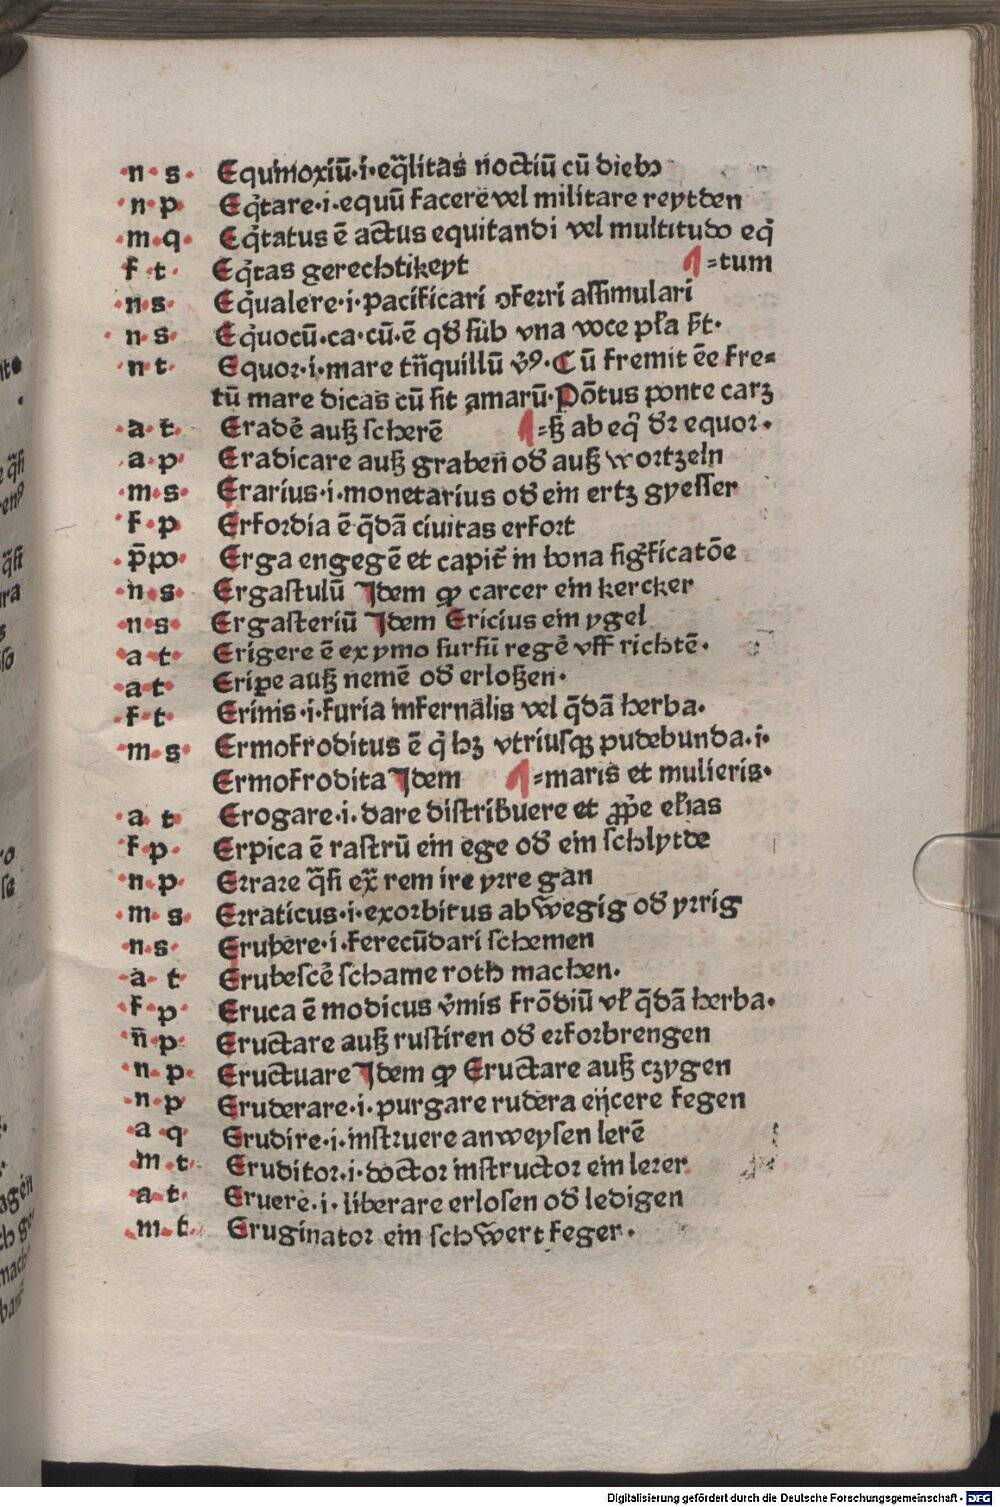 n s Equinoxiū·i·eq̄litas noctiū cū dieb⁹
n p Eq̄tare·i·equū facere vel militare reytden
m q Eq̄tatus ē actus equitandi vel multitudo eq̄
f t Eq̄tas gerechtikeyt ¶=tum
n s Eq̄ualere·i·pacificari oferri assimulari
n s Eq̄uocū·ca·cū·ē qđ sub vna voce pła
n t Equor·i·mare tñquillū v̄9·Cū fremit ēe fre=
tū mare dicas cū sit amarū·Pōtus ponte carꝫ
a t Eradē̄ auß scherē ¶=ß ab eq̄ dr̄ equor·
a p Eradicare auß graben̄ od̄ auß wortzeln
m s Erarius·i·monetarius od̄ ein ertz gyesser
f p Erfordia ē q̄dā ciuitas erfort
p̄po Erga engegē et capit̄ in bona siḡficatōe
n s Ergastulū Idem ꝙ carcer ein kercker
n s Ergasteriū Idem Ericius ein ygel
a t Erigere ē ex ymo sursū regē vff richtē·
a t Eriꝑe auß nemē od̄ erloßen·
f t Erinis·i·furia infernalis vel q̄dā herba·
m s Ermofroditus ē q̄ hꝫ vtriusqꝫ pudebunda·i·
Ermofrodita Idem ¶=maris et mulieris·
a t Erogare·i·dare distribuere et ꝓp̄e
f p Erpica ē rastrū ein ege od̄ ein schlytde
n p Errare q̄si ex̄ rem ire yrre gan
m s Erraticus·i·exorbitus abwegig od̄ yrrig
n s Erubere·i·ferecūdari schemen
a t Erubescē̄ schame roth machen·
f p Eruca ē modicus v̄mis frōdiū vł q̄dā herba·
n̄ p Eructare auß rustiren od̄ erforbrengen
n p Eructuare Idem ꝙ Eructare auß czygen
n p Eruderare·i·purgare rudera eijcere fegen
a q Erudire·i·instruere anweysen lerē
m t Eruditor·i·doctor instructor ein lerer
a t Eruere·i·liberare erlosen od̄ ledigen
m t Eruginator ein schwert feger·
Digitalisierung gefördert durch die Deutsche Forschungsgemeinschaft · DFG